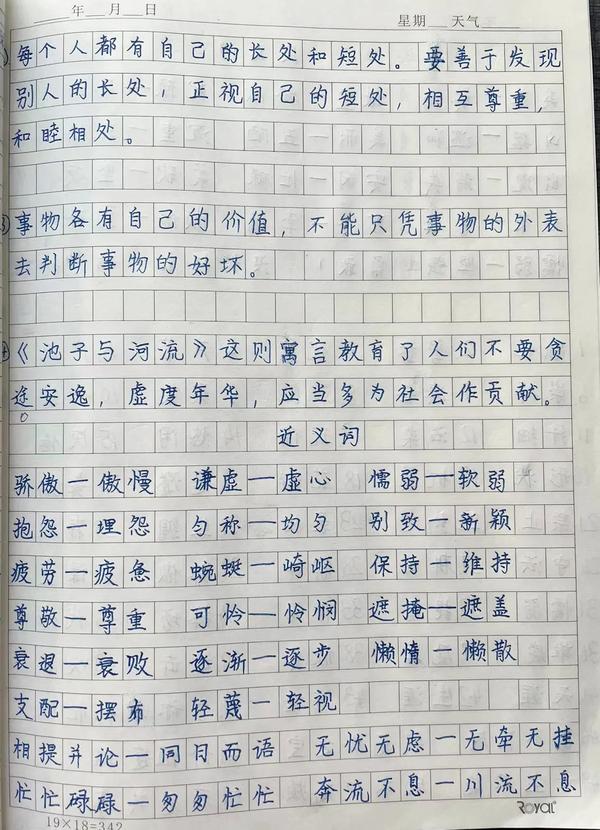 年 月 日 星期 天气
每个人都有自己的长处和短处。要善于发现
别人的长处，正视自己的短处，相互尊重，
和睦相处。
事物各有自己的价值，不能只凭事物的外表
去判断事物的好坏。
《池子与河流》这则寓言教育了人们不要贪
途安逸，虚度年华，应当多为社会作贡献。
近义词
骄傲一傲慢 谦虚一虚心 懦弱一软弱
抱怨一埋怨 匀称一均匀 别致一新颖
疲劳一疲惫 蜿蜒一崎岖 保持一维持
尊敬一尊重 可怜一怜悯 遮掩一遮盖
衰退一衰败 逐渐一逐步 懒惰一懒散
支配一摆布 轻蔑一轻视
相提并论一同日而语 无忧无虑一无牵无挂
忙忙碌碌一匆匆忙忙 奔流不息一川流不息
19×18=342 ROYAL